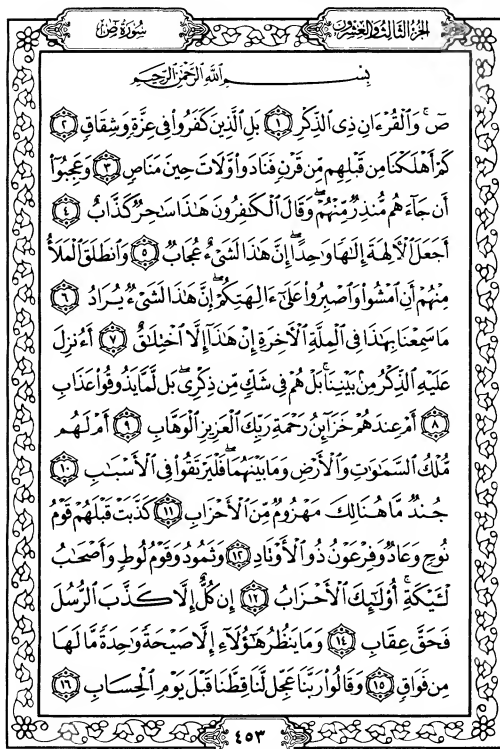 الجُزءُ الثَّالِثُ وَالعِشْرُونَ
سُورَةُ صٓ
بِسْمِ ٱللَّهِ ٱلرَّحْمَٰنِ ٱلرَّحِيمِ
صٓ ۚ وَٱلْقُرْءَانِ ذِى ٱلذِّكْرِ ١ بَلِ ٱلَّذِينَ كَفَرُوا۟ فِى عِزَّةٍ وَشِقَاقٍ ٢
كَمْ أَهْلَكْنَا مِن قَبْلِهِم مِّن قَرْنٍ فَنَادَوا۟ وَّلَاتَ حِينَ مَنَاصٍ ٣ وَعَجِبُوٓا۟
أَن جَآءَهُم مُّنذِرٌ مِّنْهُمْ ۖ وَقَالَ ٱلْكَٰفِرُونَ هَٰذَا سَٰحِرٌ كَذَّابٌ ٤
أَجَعَلَ ٱلْءَالِهَةَ إِلَٰهًا وَٰحِدًا ۖ إِنَّ هَٰذَا لَشَىْءٌ عُجَابٌ ٥ وَٱنطَلَقَ ٱلْمَلَأُ
مِنْهُمْ أَنِ ٱمْشُوا۟ وَٱصْبِرُوا۟ عَلَىٰٓ ءَالِهَتِكُمْ ۖ إِنَّ هَٰذَا لَشَىْءٌ يُرَادُ ٦
مَا سَمِعْنَا بِهَٰذَا فِى ٱلْمِلَّةِ ٱلْءَاخِرَةِ إِنْ هَٰذَآ إِلَّا ٱخْتِلَٰقٌ ٧ أَءُنزِلَ
عَلَيْهِ ٱلذِّكْرُ مِنۢ بَيْنِنَا ۚ بَلْ هُمْ فِى شَكٍّ مِّن ذِكْرِى ۖ بَل لَّمَّا يَذُوقُوا۟ عَذَابِ
٨ أَمْ عِندَهُمْ خَزَآئِنُ رَحْمَةِ رَبِّكَ ٱلْعَزِيزِ ٱلْوَهَّابِ ٩ أَمْ لَهُم
مُّلْكُ ٱلسَّمَٰوَٰتِ وَٱلْأَرْضِ وَمَا بَيْنَهُمَا ۖ فَلْيَرْتَقُوا۟ فِى ٱلْأَسْبَٰبِ ١٠
جُندٌ مَّا هُنَالِكَ مَهْزُومٌ مِّنَ ٱلْأَحْزَابِ ١١ كَذَّبَتْ قَبْلَهُمْ قَوْمُ
نُوحٍ وَعَادٌ وَفِرْعَوْنُ ذُو ٱلْأَوْتَادِ ١٢ وَثَمُودُ وَقَوْمُ لُوطٍ وَأَصْحَٰبُ
لْـَٔيْكَةِ ۚ أُو۟لَٰٓئِكَ ٱلْأَحْزَابُ ١٣ إِن كُلٌّ إِلَّا كَذَّبَ ٱلرُّسُلَ
فَحَقَّ عِقَابِ ١٤ وَمَا يَنظُرُ هَٰٓؤُلَآءِ إِلَّا صَيْحَةً وَٰحِدَةً مَّا لَهَا
مِن فَوَاقٍ ١٥ وَقَالُوا۟ رَبَّنَا عَجِّل لَّنَا قِطَّنَا قَبْلَ يَوْمِ ٱلْحِسَابِ ١٦
٤٥٣